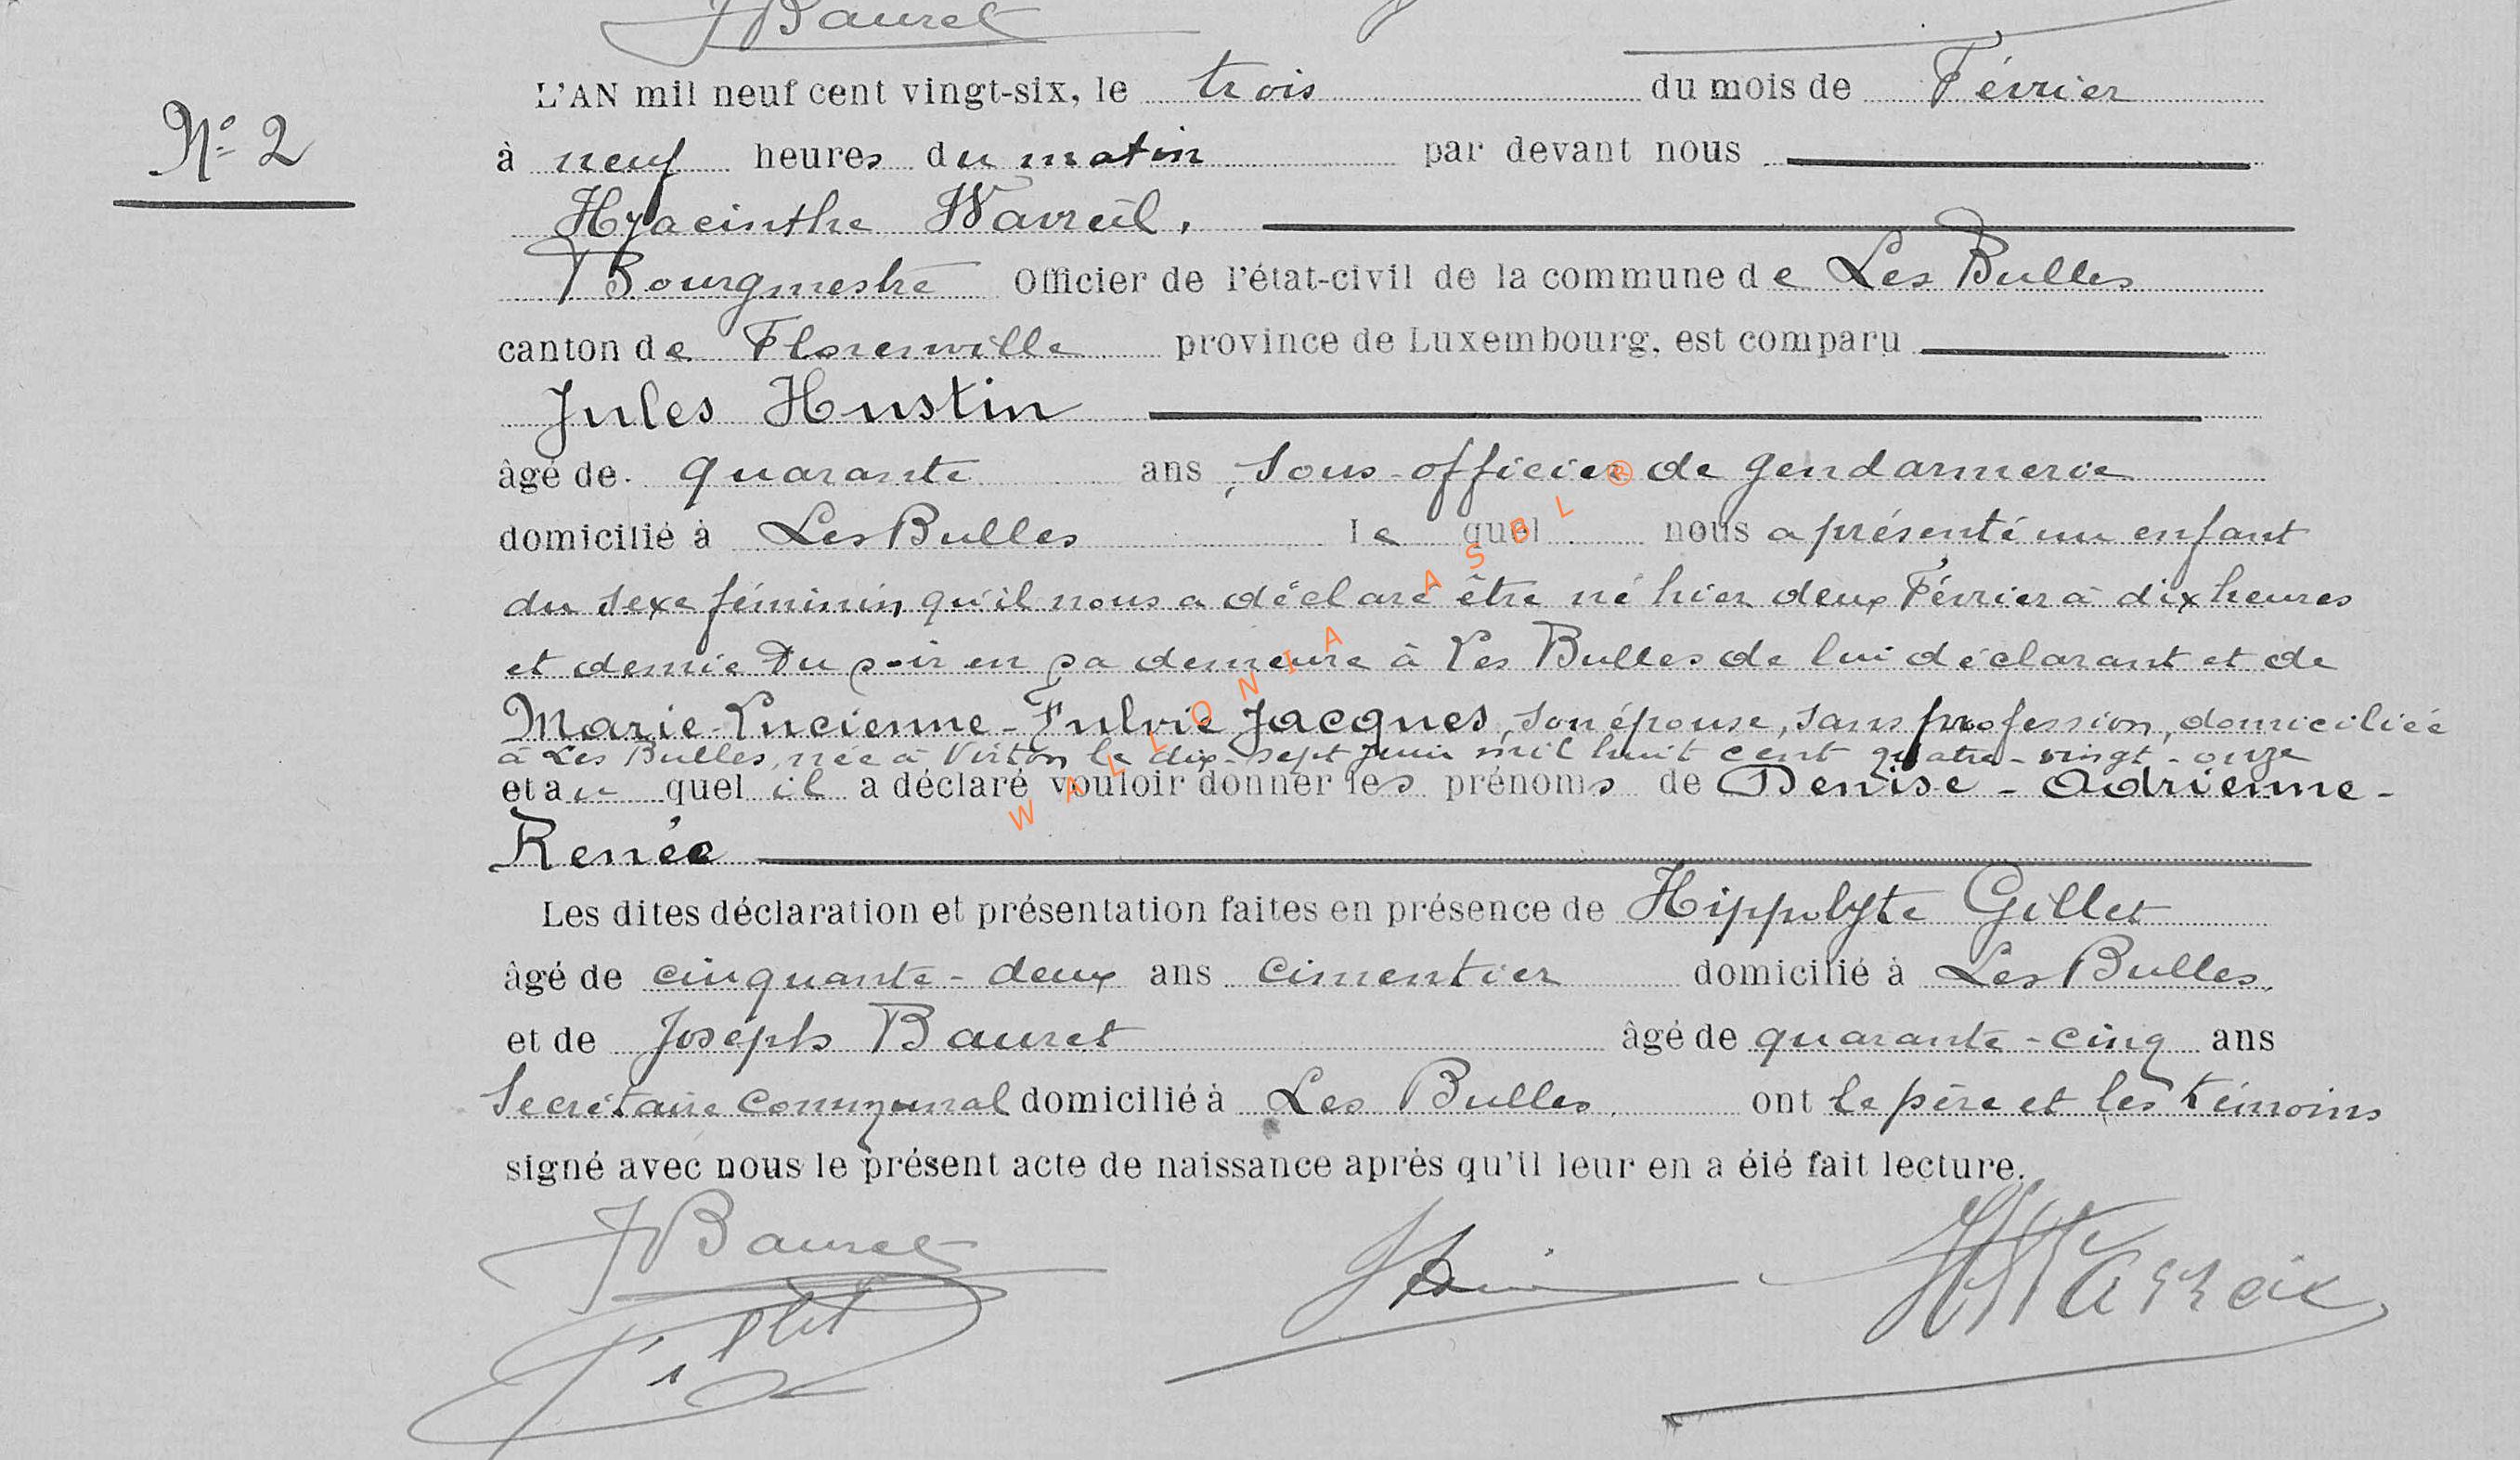 JBauret
L'AN mil neuf cent vingt-six, le trois du mois de Février
N° 2
à neuf heures du matin par devant nous
Hyacinthe Wavreil,
Bourgmestre Officier de l'état-civil de la commune de Les Bulles
canton de Florenville province de Luxembourg, est comparu
Jules Hustin
âgé de quarante ans, sous-officier de gendarmerie
domicilié à Les Bulles le quel nous a présenté un enfant
du sexe féminin qu'il nous a déclaré être né hier deux Février à dix heures
et demie Du soir en sa demeure à Les Bulles de lui déclarant et de
Marie-Lucienne-Fulvie Jacques, son épouse, sans profession, domiciliée
à Les Bulles, née à Virton le dix-sept juin mil huit cent quatre-vingt-onze
et au quel il a déclaré vouloir donner les prénoms de Denise-Adrienne-
Renée
Les dites déclaration et présentation faites en présence de Hippolyte Gillet
âgé de cinquante-deux ans cimentier domicilié à Les Bulles,
et de Joseph Bauret âgé de quarante-cinq ans
Secrétaire communal domicilié à Les Bulles, ont le père et les témoins
signé avec nous le présent acte de naissance après qu'il leur en a été fait lecture.
JBauret
WALLONIA ASBL ®